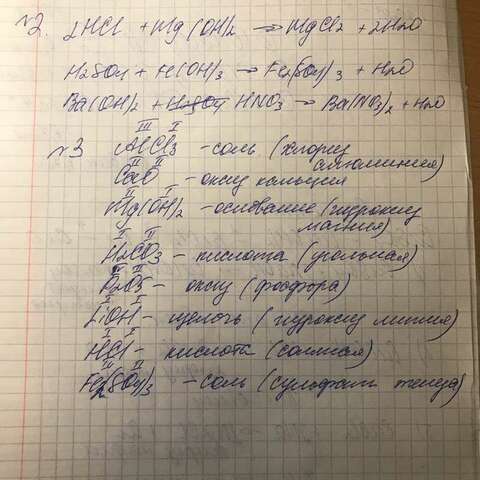 №2. 2HCl + Mg(OH)2 → MgCl2 + 2H2O
H2SO4 + Fe(OH)3 → Fe2(SO4)3 + H2O
Ba(OH)2 + H2SO4 HNO3 → Ba(NO3)2 + H2O
III I
№3 AlCl3 - соль (хлорид
алюминия)
II II
CaO - оксид кальция
II I
Mg(OH)2 - основание (гидроксид
магния)
I II
H2CO3 - кислота (угольная)
P2O5 - оксид (фосфора)
I I
LiOH - щелочь (гидроксид лития)
I I
HCl - кислота (соляная)
Fe2(SO4)3 - соль (сульфат железа)